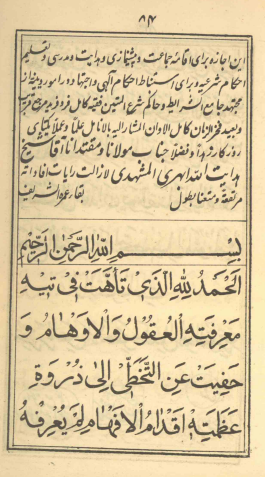 ۸۴
این اجازه برای اقامه جماعت و پیشنمازی و هدایت و مدرسی و تعلیم
احکام شرعیه و برای استنباط احکام الهی و اجتهاد در امور دینیه از
مجتهد جامع الشرائط و حاکم شرع المتین فقیه کامل فرد فرید مرجع قریب
و بعید فخر الزمان کامل الاوان المشار الیه بالانامل علماً وعملاً یکتای
روزگار زهداً وفضلاً جناب مولانا ومقتدانا آقا شیخ
هدایت الله ابهری المشهدی لازالت رایات افاداته
مرتفعة ومتعنا بطول بقاء عمره الشریف
بسم الله الرحمن الرحیم
الحمد لله الذی تاهت فی تیه
معرفته العقول والاوهام و
حفیت عن التخطی الی ذروة
عظمته اقدام الافهام لم یعرفه